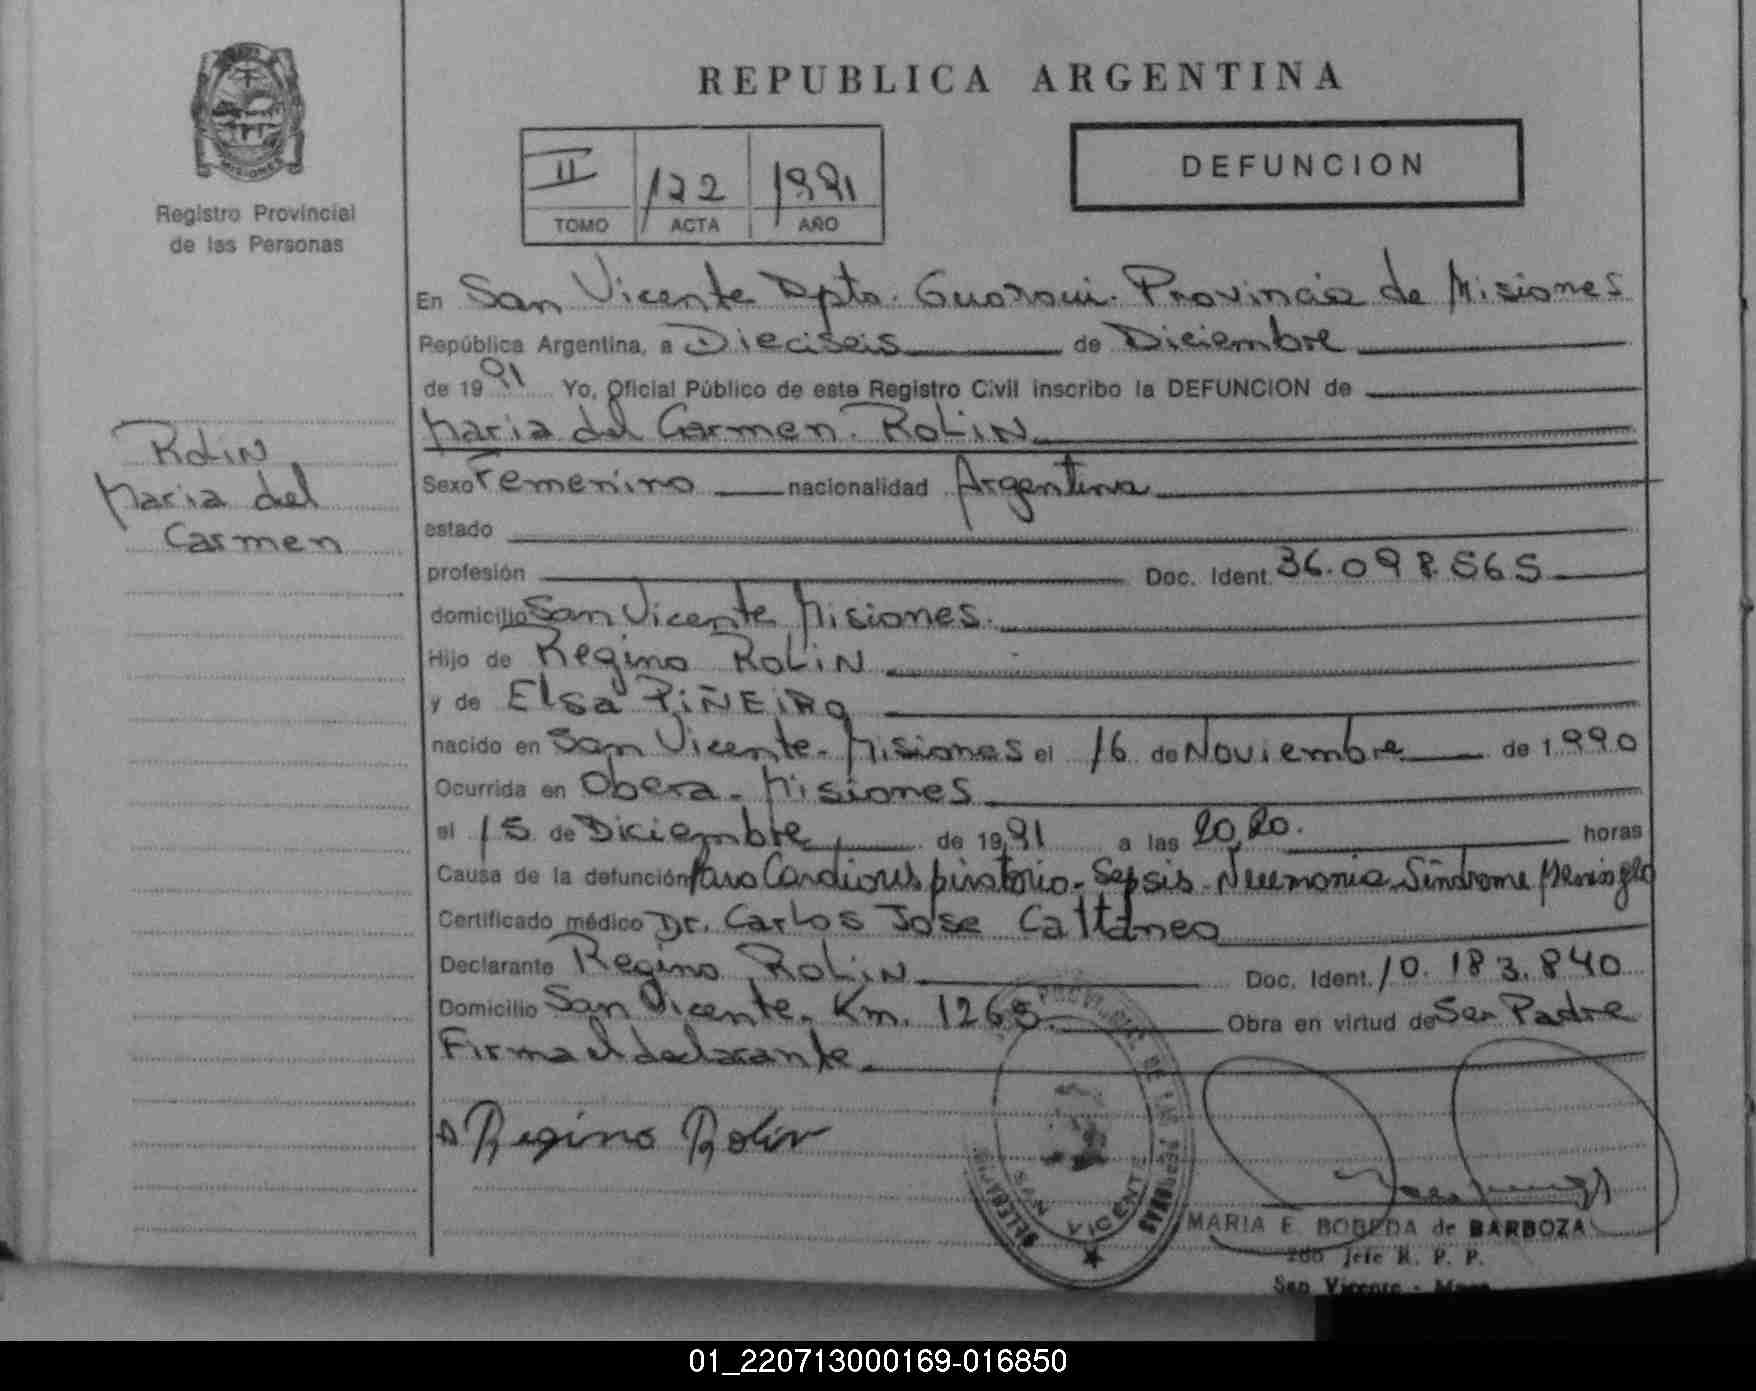 REPUBLICA ARGENTINA
MISIONES
Registro Provincial
de las Personas
II 122 1991
TOMO ACTA AÑO
DEFUNCION
En San Vicente Dpto. Guarani. Provincia de Misiones
República Argentina, a Dieciseis de Diciembre
de 1991 Yo, Oficial Público de este Registro Civil inscribo la DEFUNCION de
Maria del Carmen. ROLIN
ROLIN
Maria del
Carmen
Sexo Femenino nacionalidad Argentina
estado
profesión Doc. Ident. 36.098.565
domicilio San Vicente Misiones.
Hijo de Regino ROLIN
y de Elsa PIÑEIRO
nacido en San Vicente. Misiones el 16 de Noviembre de 1990
Ocurrida en Obera - Misiones
el 15 de Diciembre de 1991 a las 20,20. horas
Causa de la defunción Paro Cardiorespiratorio - Sepsis - Neumonia Sindrome
Certificado médico Dr. Carlos Jose Cattaneo
Declarante Regino ROLIN Doc. Ident. 10.183.840
Domicilio San Vicente. Km. 1265. Obra en virtud de Ser Padre
Firma el declarante
Regino Rolin
SAN VICENTE
MARIA E. BOBEDA de BARBOZA
2do Jefe R. P. P.
San Vicente -
01_220713000169-016850